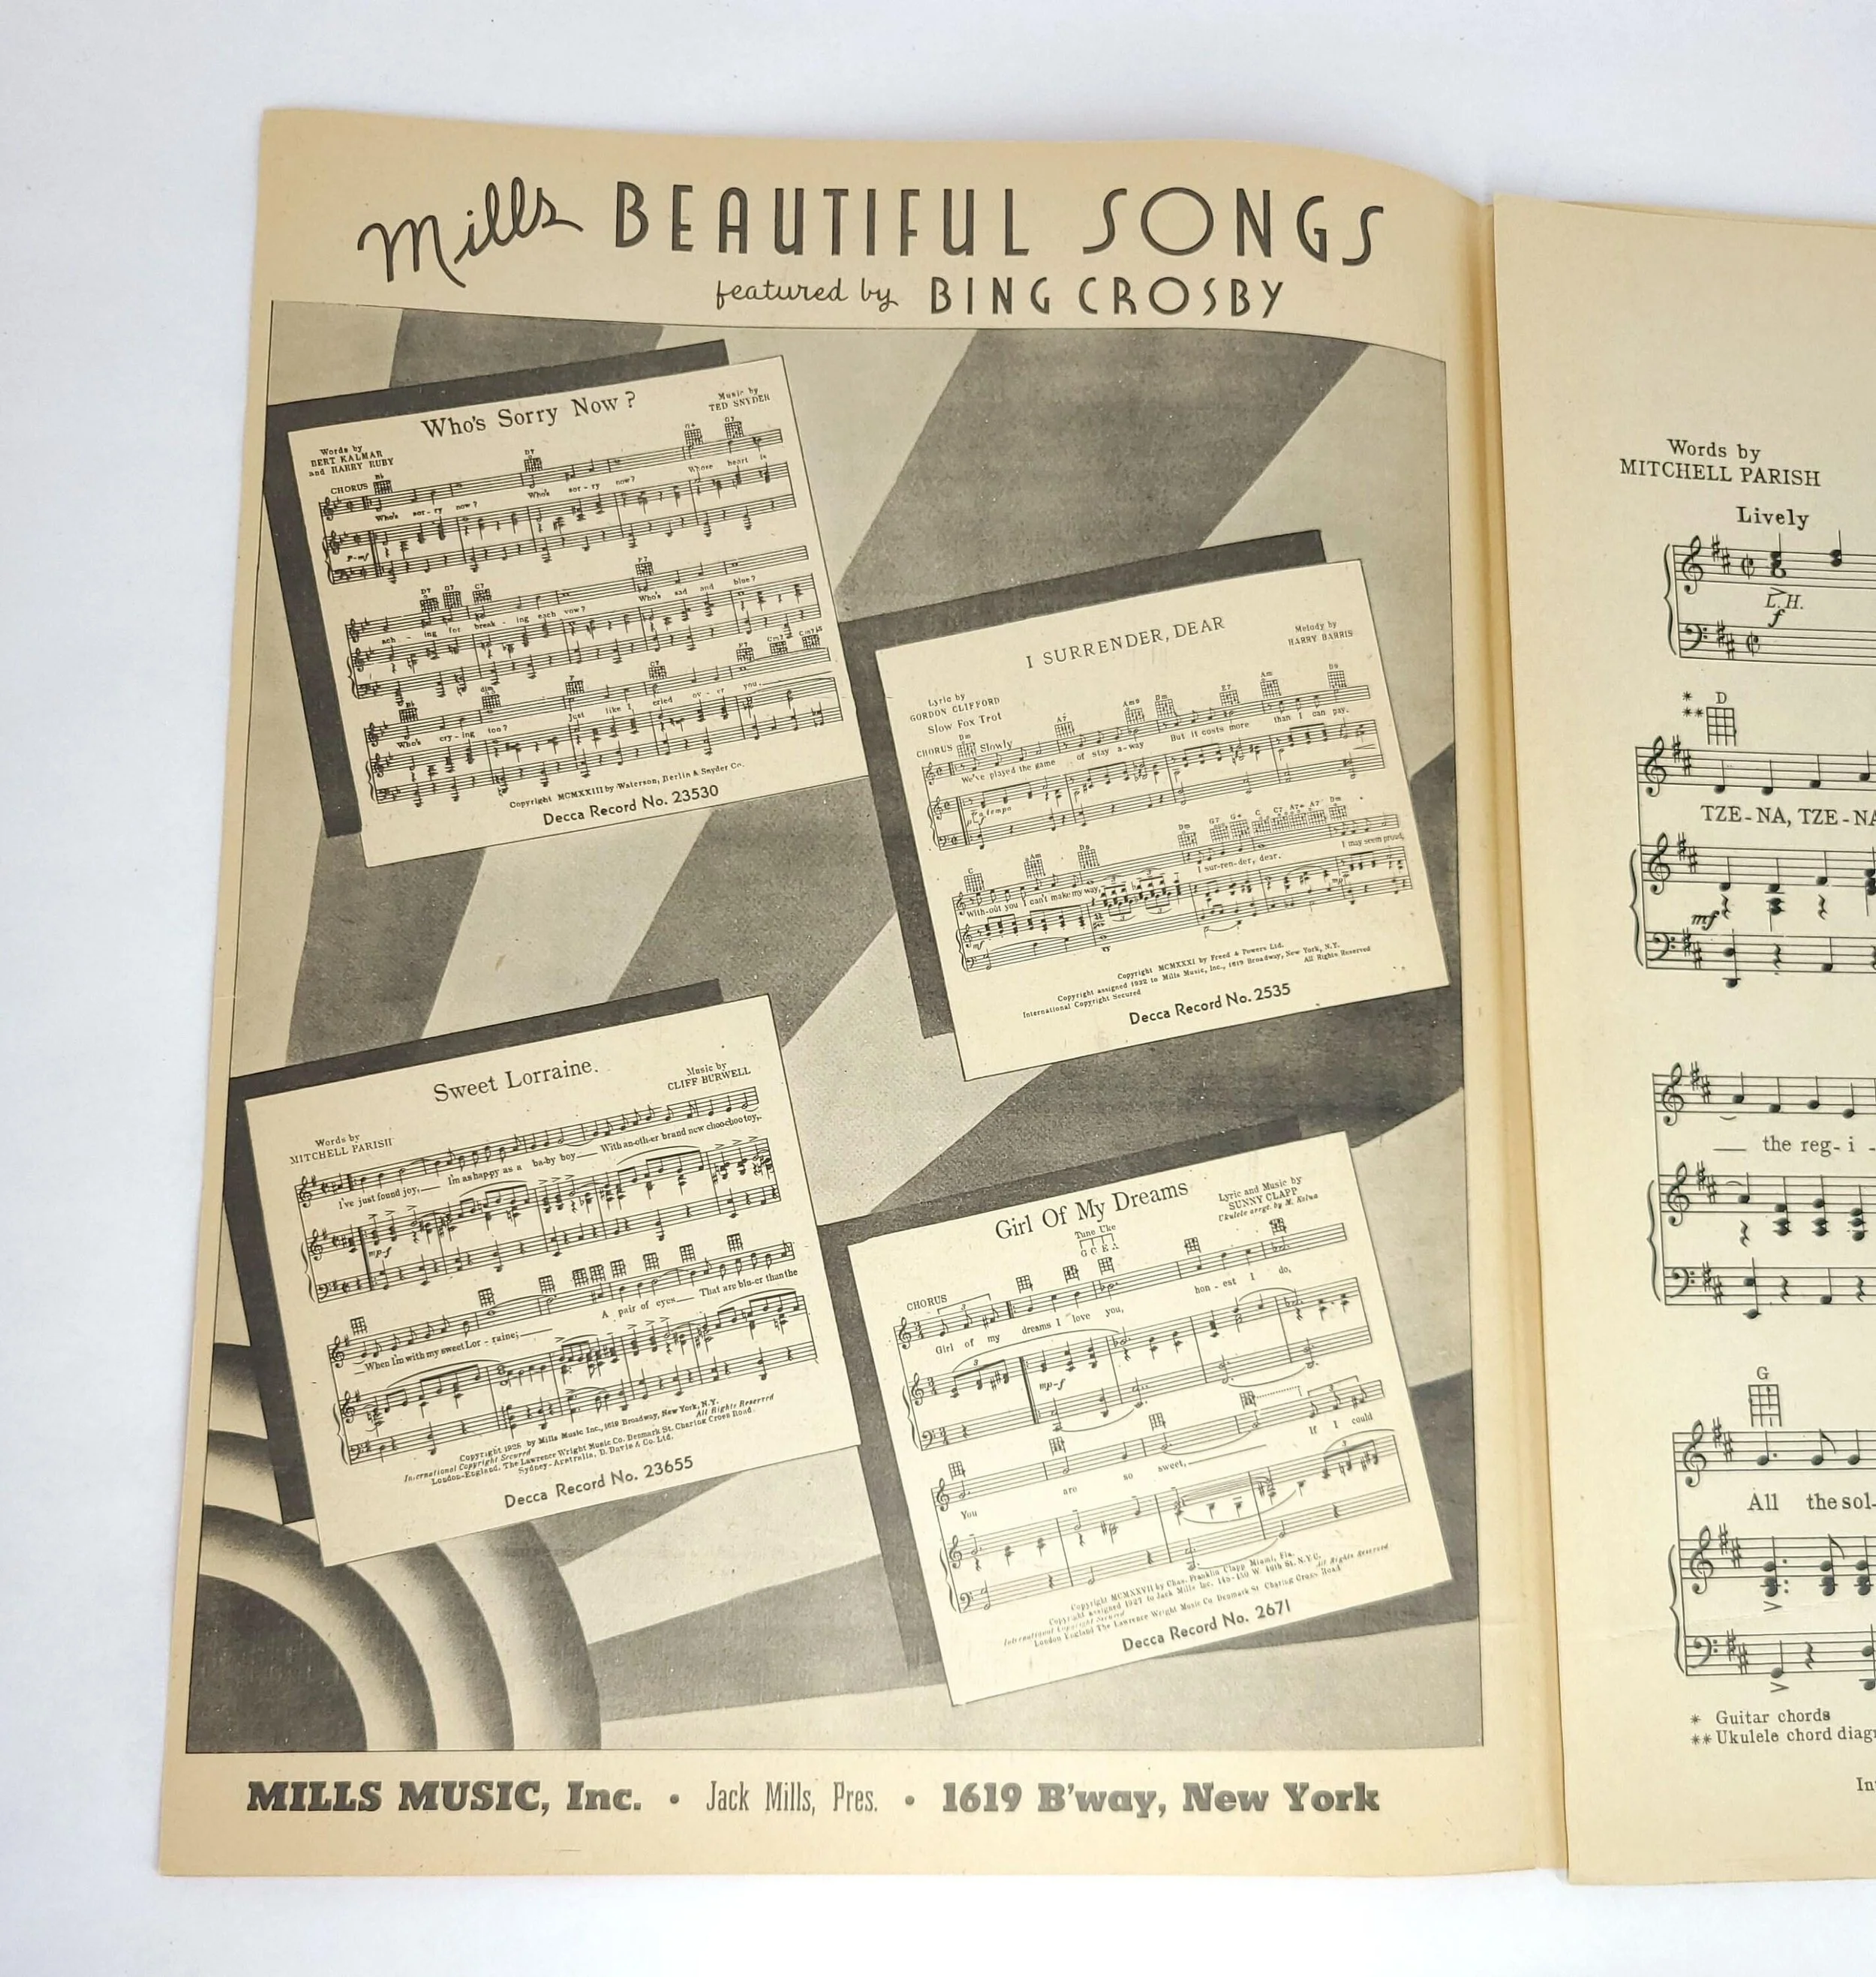 Mills BEAUTIFUL SONGS
featured by BING CROSBY
Who's Sorry Now?
Words by
BERT KALMAR
and HARRY RUBY
Music by
TED SNYDER
CHORUS
Who's sor-ry now? Who's sor-ry now? Whose heart is
ach - ing for break - ing each vow? Who's sad and blue?
Who's cry-ing too? Just like I cried ov - er you.
Copyright MCMXXIII by Waterson, Berlin & Snyder Co.
Decca Record No. 23530
I SURRENDER, DEAR
Lyric by
GORDON CLIFFORD
Melody by
HARRY BARRIS
Slow Fox Trot
CHORUS Slowly
We've played the game of stay a-way But it costs more than I can pay.
a tempo
With-out you I can't make my way, I sur-ren-der, dear. I may seem proud,
mf
Copyright MCMXXXI by Freed & Powers Ltd.
Copyright assigned 1932 to Mills Music, Inc., 1619 Broadway, New York, N.Y.
International Copyright Secured All Rights Reserved
Decca Record No. 2535
Sweet Lorraine.
Words by
MITCHELL PARISH
Music by
CLIFF BURWELL
I've just found joy, I'm as happy as a ba-by boy With an-oth-er brand new choo-choo toy,
mp-f
When I'm with my sweet Lor - raine; A pair of eyes That are blu-er than the
Copyright 1928 by Mills Music Inc., 1619 Broadway, New York, N.Y.
International Copyright Secured All Rights Reserved
London-England, The Lawrence Wright Music Co. Denmark St. Charing Cross Road.
Sydney-Australia, D. Davis & Co. Ltd.
Decca Record No. 23655
Girl Of My Dreams
Lyric and Music by
SUNNY CLAPP
Ukulele arrgt. by
Tune Uke
G C E A
CHORUS
Girl of my dreams I love you, hon - est I do,
mp-f
You are so sweet, If I could
Copyright MCMXXVII by Chas. Franklin Clapp Miami, Fla.
Copyright assigned 1927 to Jack Mills Inc. 148-150 W. 46th St. N.Y.C.
International Copyright Secured All Rights Reserved
London England The Lawrence Wright Music Co. Denmark St. Charing Cross Road
Decca Record No. 2671
MILLS MUSIC, Inc. • Jack Mills, Pres. • 1619 B'way, New York
Words by
MITCHELL PARISH
Lively
L.H.
f
* D
**
TZE-NA, TZE-NA
mf
the reg-i -
G
All the sol-
* Guitar chords
** Ukulele chord